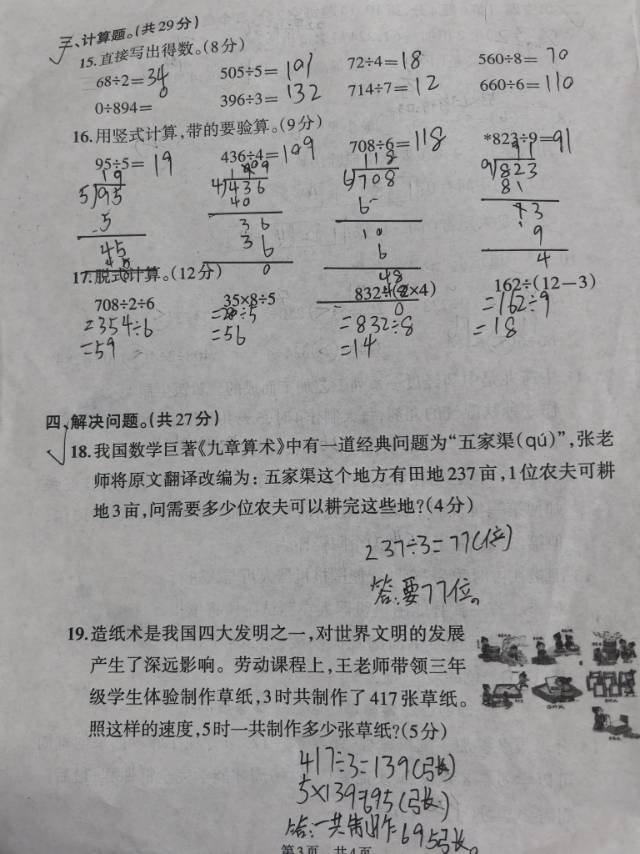 三、计算题。(共29分)
15.直接写出得数。(8分)
68÷2=34 505÷5=101 72÷4=18 560÷8=70
0÷894=0 396÷3=132 714÷7=12 660÷6=110
16.用竖式计算,带*的要验算。(9分)
95÷5=19 436÷4=109 708÷6=118 *823÷9=91
19 109 118 91
5 95 4 436 6 708 9 823
5 40 6 81
45 36 10 13
45 36 6 9
0 48 4
17.脱式计算。(12分)
708÷2÷6 35×8÷5 832÷(2×4) 162÷(12-3)
=354÷6 =÷5 =832÷8 =162÷9
=59 =56 =14 =18
四、解决问题。(共27分)
18.我国数学巨著《九章算术》中有一道经典问题为“五家渠(qú)”,张老
师将原文翻译改编为:五家渠这个地方有田地237亩,1位农夫可耕
地3亩,问需要多少位农夫可以耕完这些地?(4分)
237÷3=77(位)
答:要77位。
19.造纸术是我国四大发明之一,对世界文明的发展
产生了深远影响。劳动课程上,王老师带领三年
级学生体验制作草纸,3时共制作了417张草纸。
照这样的速度,5时一共制作多少张草纸?(5分)
417÷3=139(张)
5×139=695(张)
答:一共制作695张。
第3页 共4页